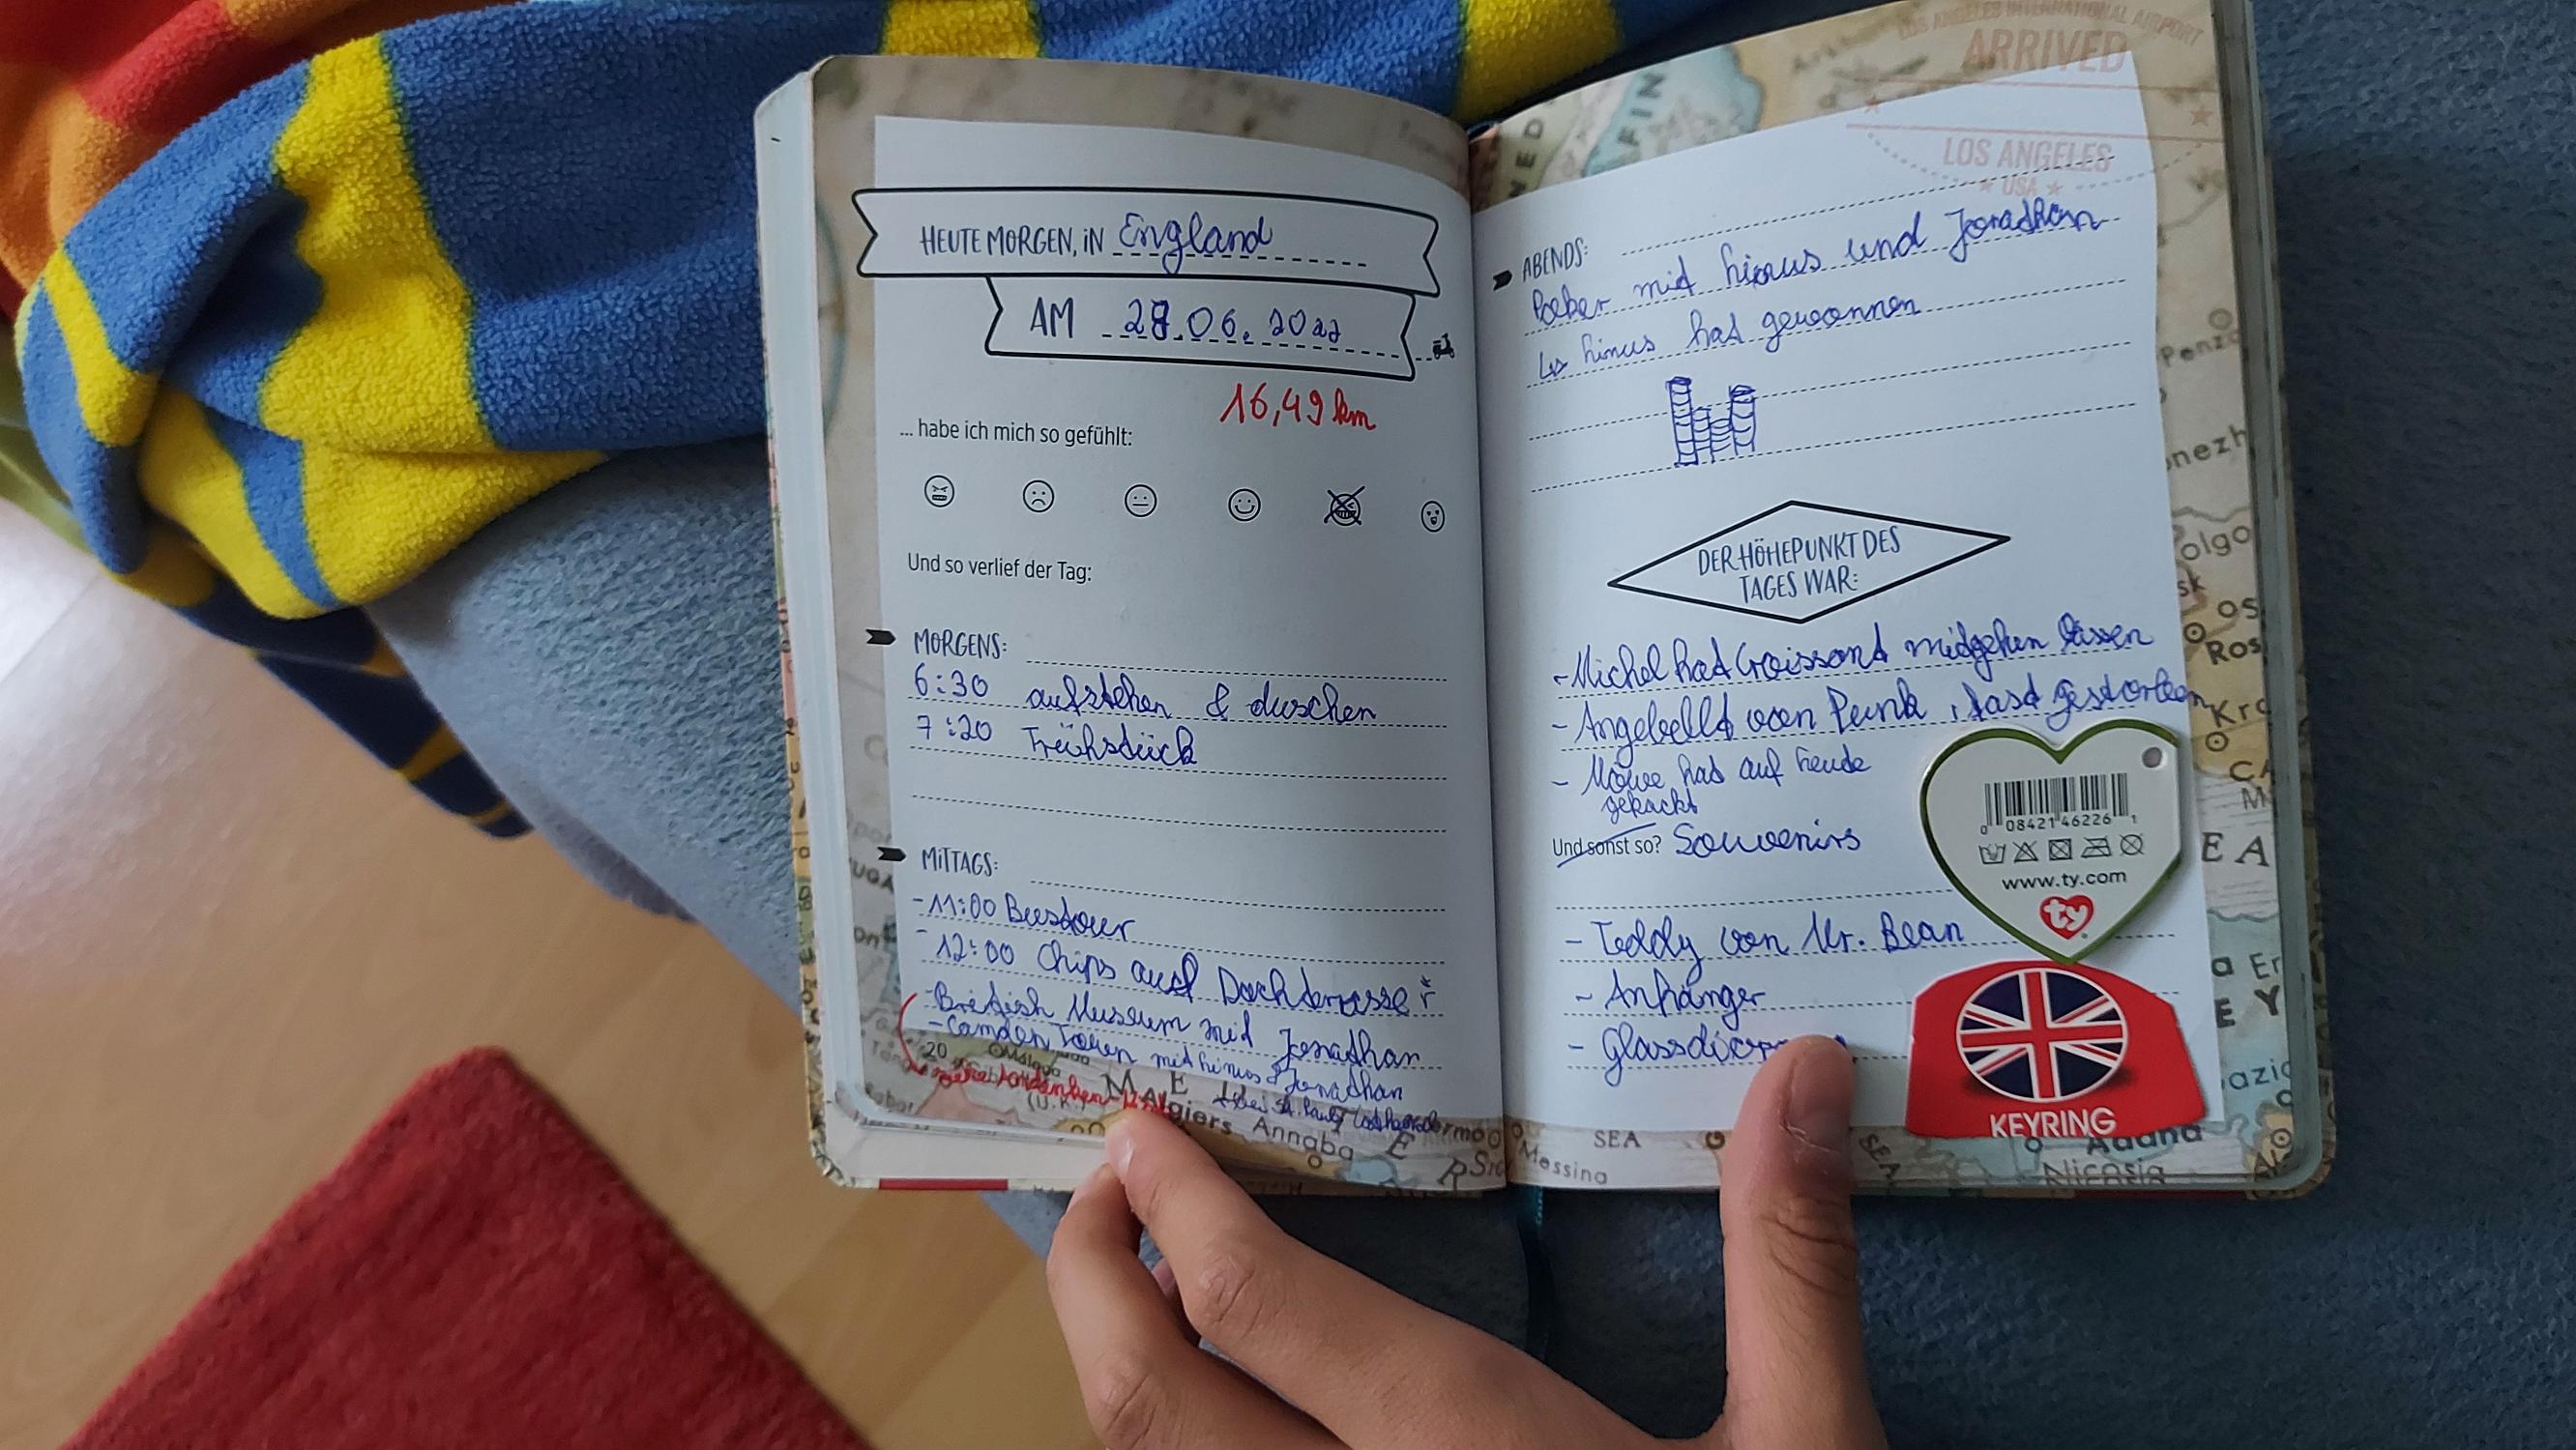 HEUTE MORGEN, iN England
AM 28.06.2022
16,49 km
... habe ich mich so gefühlt:
Und so verlief der Tag:
MORGENS:
6:30 aufstehen & duschen
7:20 Frühstück
MiTTAGS:
-11:00 Bustour
-12:00 Chips auf Dachterrasse
-British Museum mit Jonathan
-Camden Town mit Linus & Jonathan
20
LOS ANGELES INTERNATIONAL AIRPORT
ARRIVED
LOS ANGELES
USA
ABENDS:
Poker mit Linus und Jonathan
↳ Linus hat gewonnen
DER HÖHEPUNKT DES
TAGES WAR:
- Michel hat Croissant mitgehen lassen
- Angebellt von Punk, fast gestorben
- Möwe hat auf Leute
gekackt
Und sonst so? Souvenirs
- Teddy von Mr. Bean
- Anhänger
0 08421 46226 1
www.ty.com
ty
KEYRING
Algiers Annaba
SEA
Messina
Adana
Nicosia